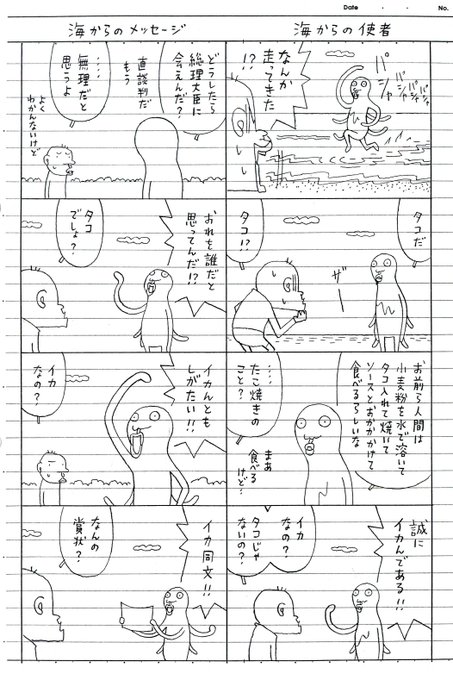 Date ・ ・ No.
海からの使者
パシャ
パシャ
パシャ
パシャ
なんか
走ってきた
!?
タコだ
ザー
タコ!?
お前ら人間は
小麦粉を水で溶いて
タコ入れて焼いて
ソースとおかかかけて
食べるらしいな
‥‥
たこ焼きの
こと?
まあ
食べる
けど…
誠に
イカんである!!
イカ
なの?
タコじゃ
ないの?
海からのメッセージ
どうしたら
総理大臣に
会えんだ?
もう
直談判だ
‥‥
無理だと
思うよ
よく
わかんないけど
おれを誰だと
思ってんだ!?
タコ
でしょ?
イカんとも
しがたい!!!
イカ
なの?
イカ同文!!
なんの
賞状?